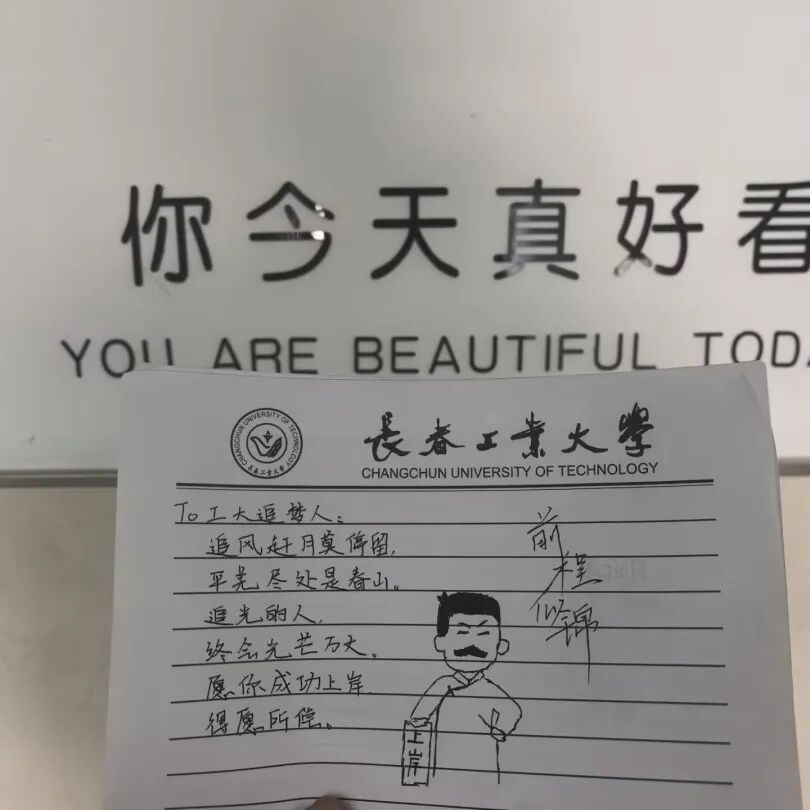 你今天真好看
YOU ARE BEAUTIFUL TODA
CHANGCHUN UNIVERSITY OF TECHNOLOGY
长春工业大学
長春工業大學
CHANGCHUN UNIVERSITY OF TECHNOLOGY
To工大追梦人：
追风赶月莫停留，
平芜尽处是春山。
追光的人，
终会光芒万丈。
愿你成功上岸，
得愿所偿。
前程似锦
上岸